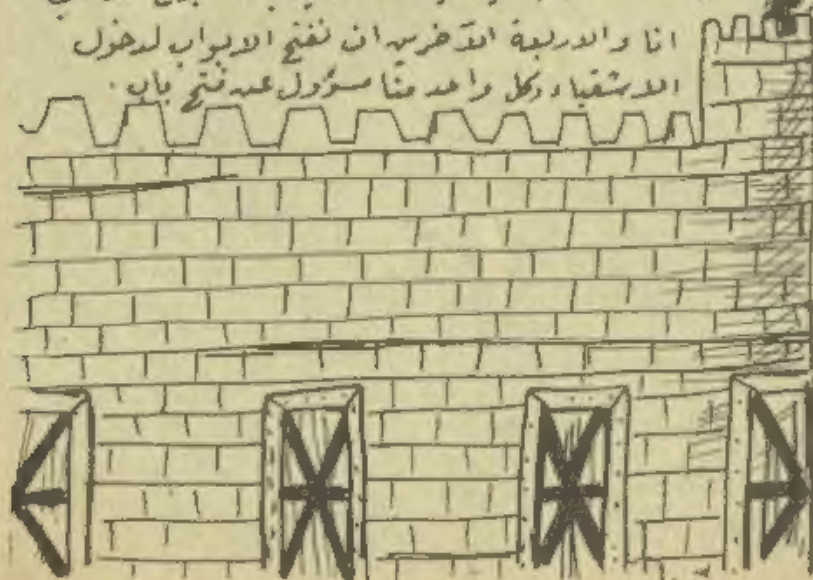 انا والاربعة الآخرين ان نفتح الابواب لدخول
الاشقياء وكل واحد منّا مسؤول عن فتح باب.